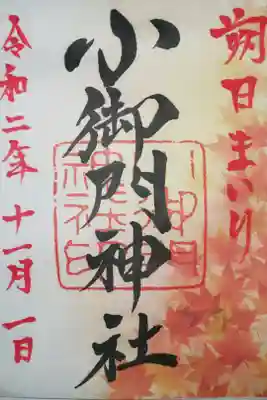 朔日まいり
小御門神社
小御門神社印
令和二年十一月一日